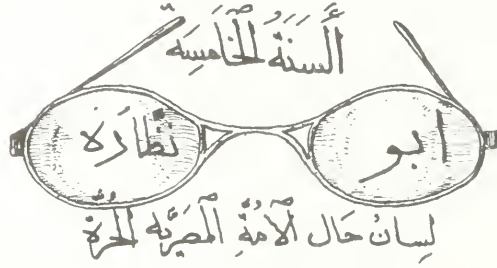 أَلسَنَةُ الْخَامِسَه
ابو نظارَه
لِسانُ حَال الْأُمَّةِ الْمِصْرِيَّه الْحُرَّة